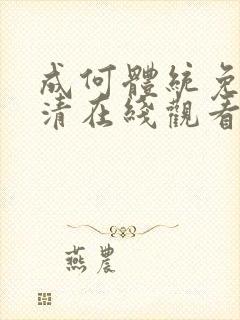 成何體統免
清在綫觀看
燕農